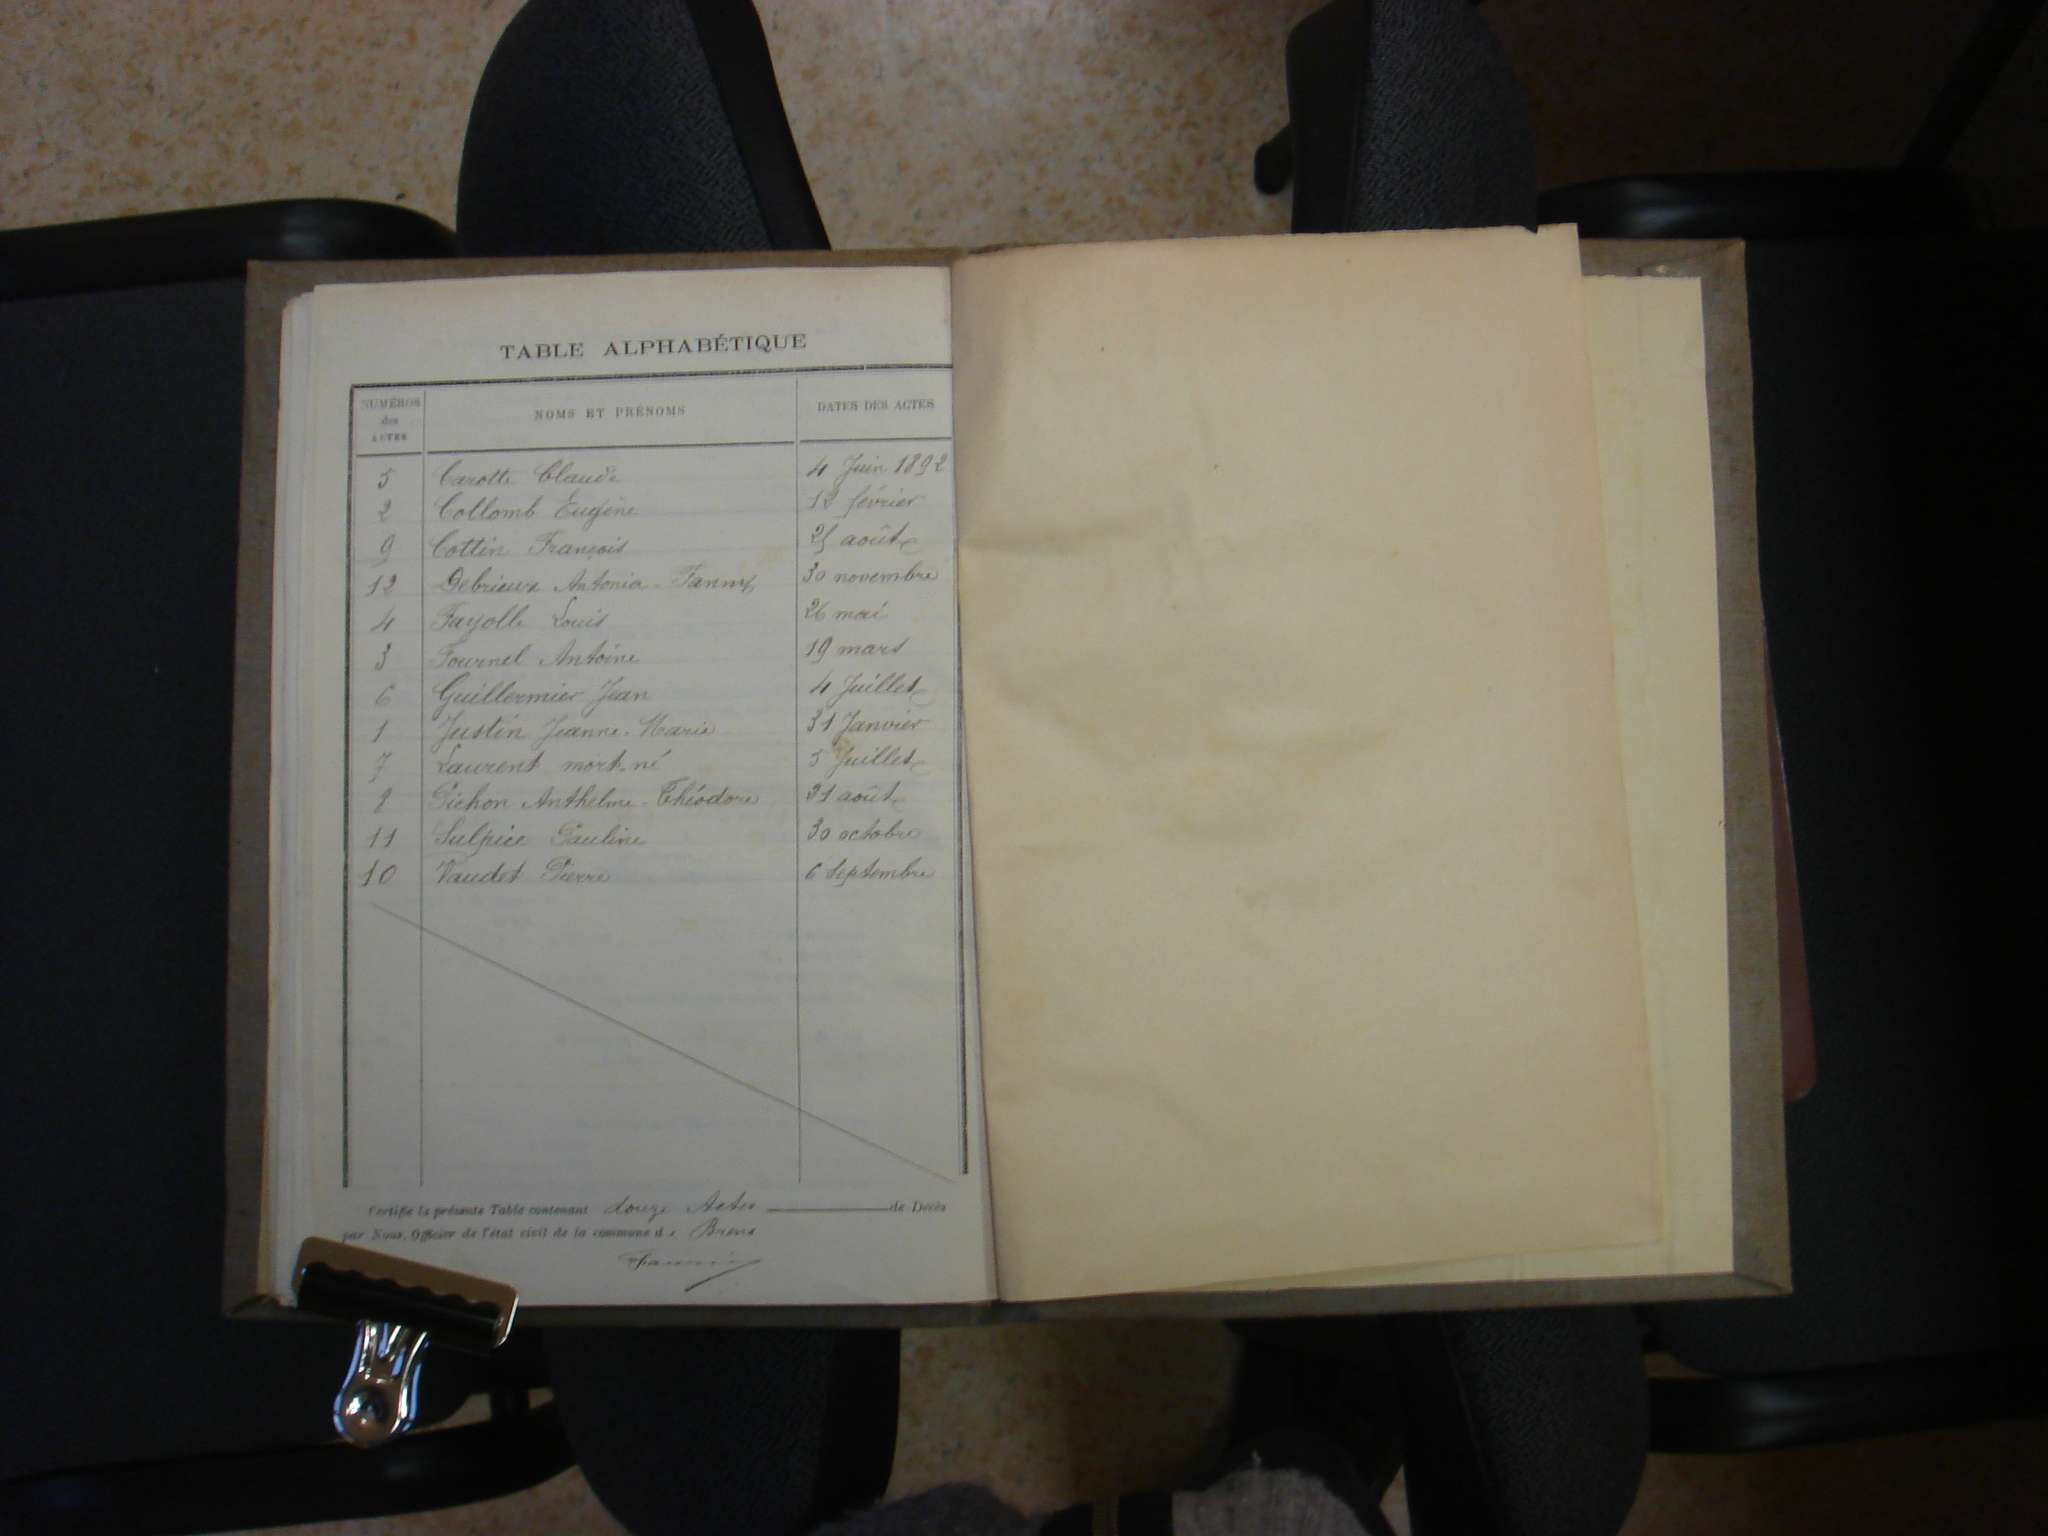 TABLE ALPHABÉTIQUE
NUMÉROS des ACTES NOMS ET PRÉNOMS DATES DES ACTES
5 Carotte Claude 4 Juin 1892
2 Collomb Eugène 12 février
9 Cottin François 25 août
12 Debrieux Antonia-Fanny 30 novembre
4 Fayolle Louis 26 mai
3 Fournel Antoine 19 mars
6 Guillermier Jean 4 Juillet
1 Justin Jeanne-Marie 31 Janvier
7 Laurent mort-né 5 Juillet
8 Pichon Anthelme-Théodore 31 août
11 Sulpice Pauline 30 octobre
10 Vaudet Pierre 6 Septembre
Certifie la présente Table contenant douze Actes de Décès
par Nous, Officier de l'état civil de la commune de Brens